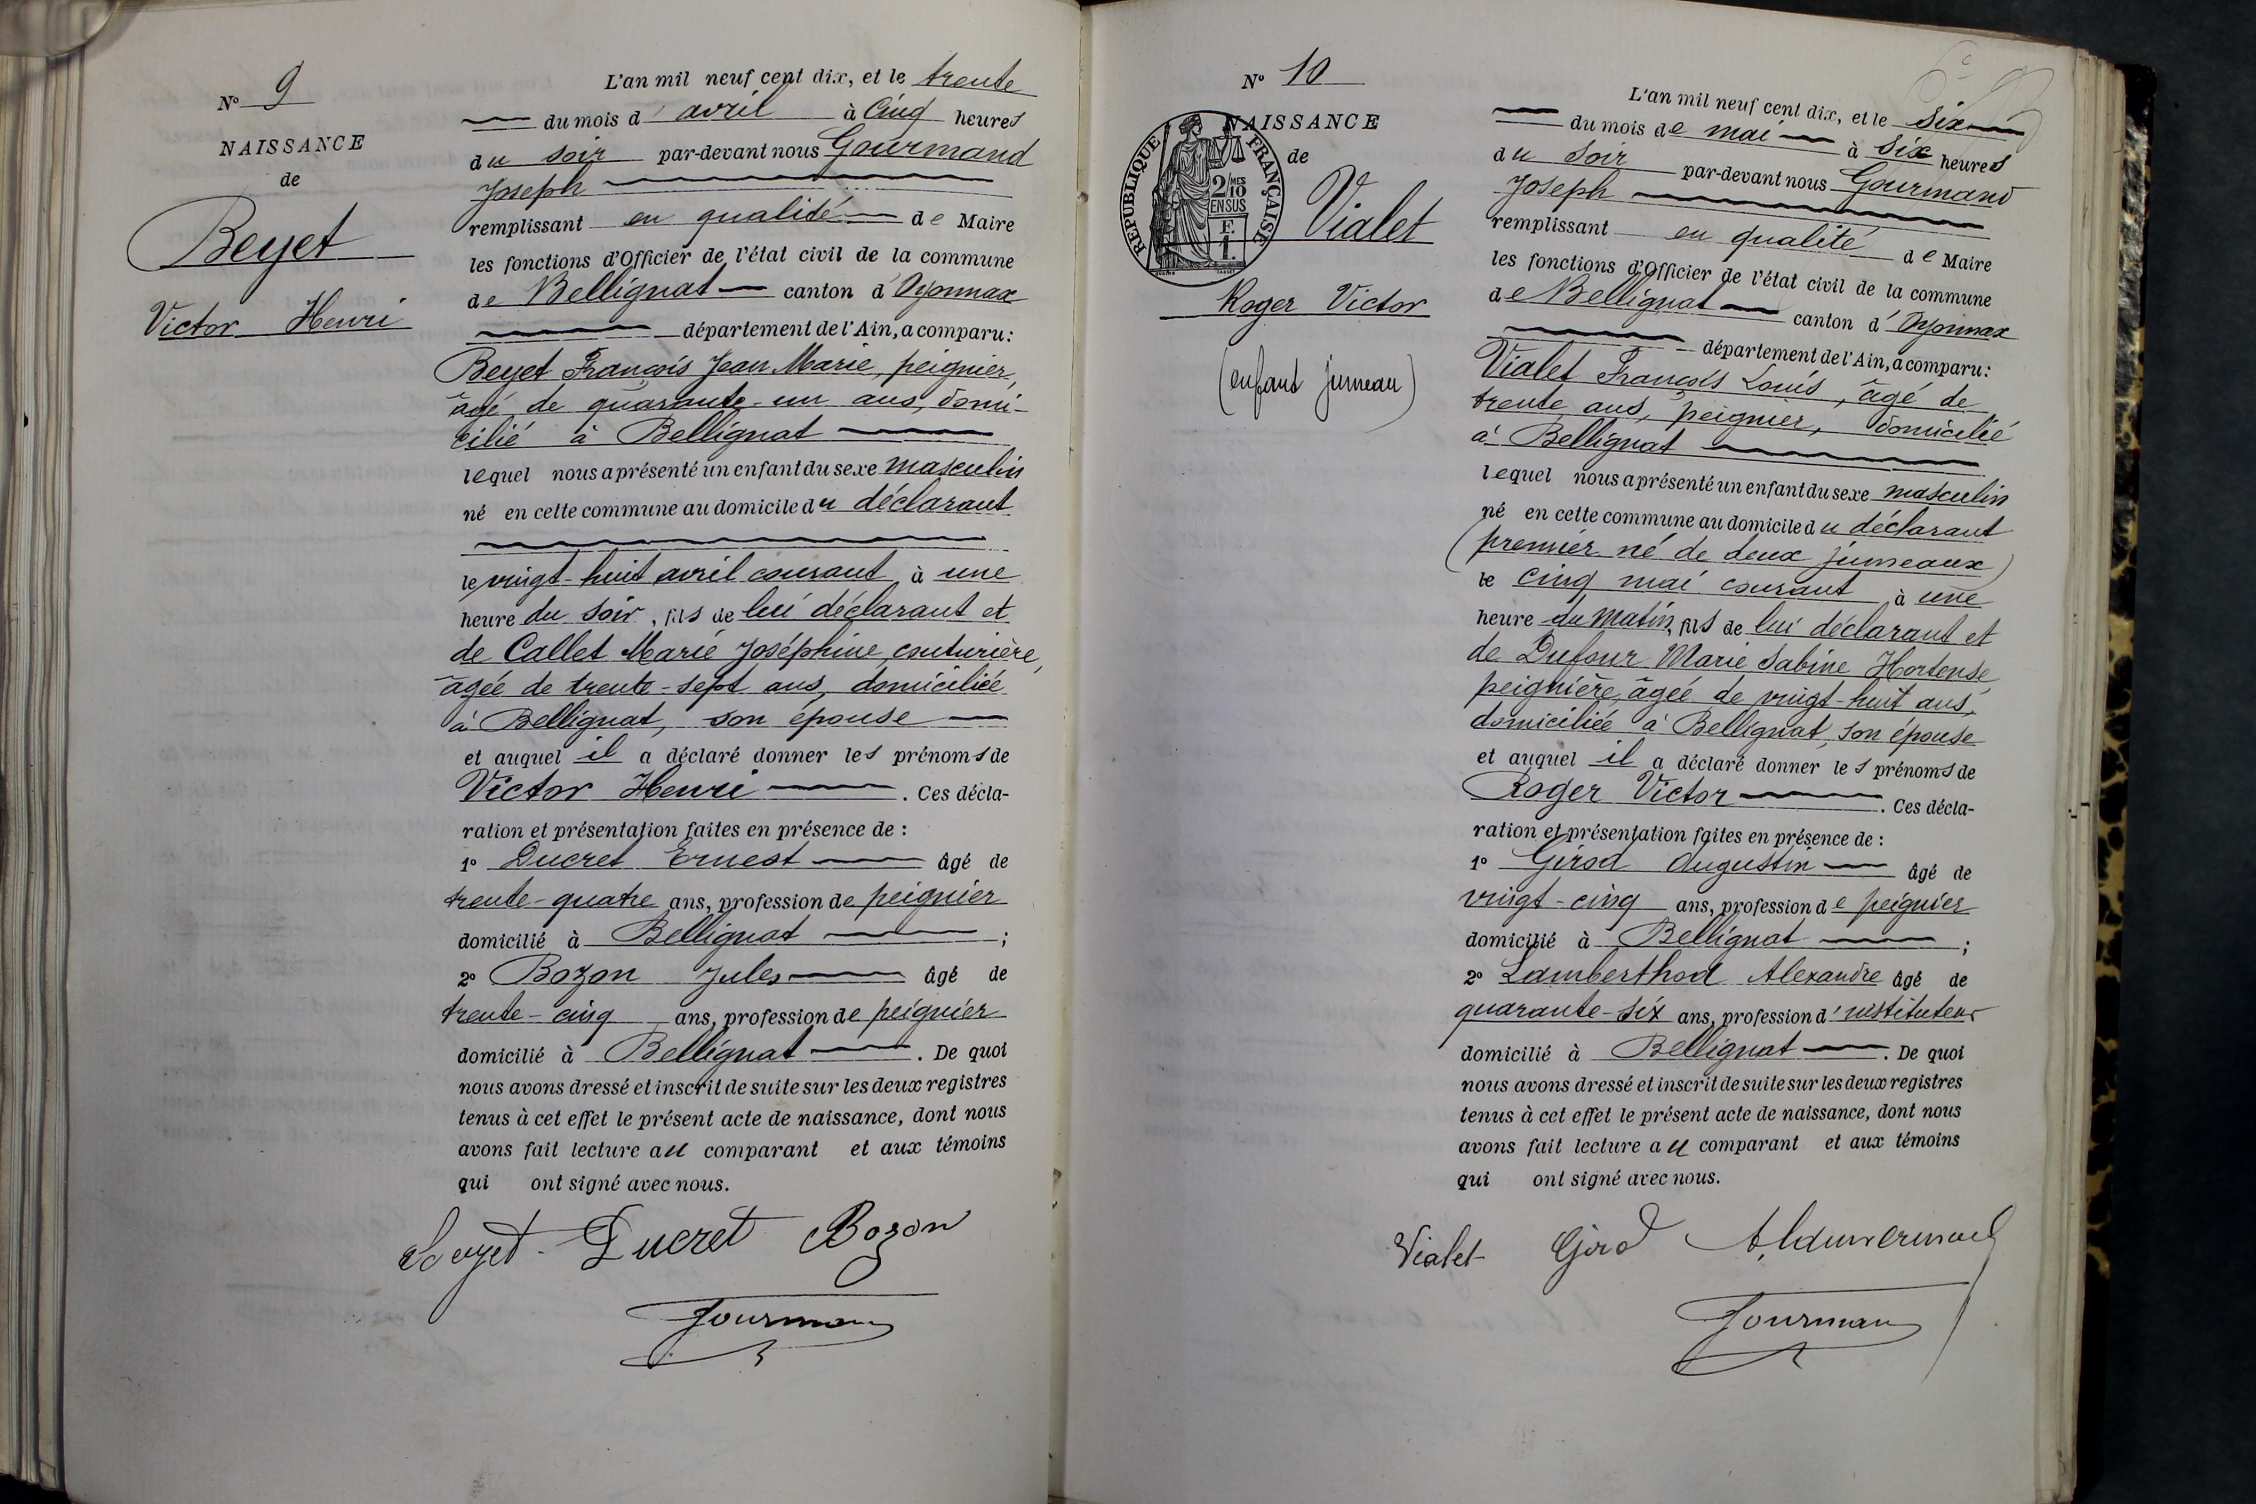 N° 9
NAISSANCE
de
Beyet
Victor Henri
L'an mil neuf cent dix, et le trente
du mois d'avril à cinq heures
du soir par-devant nous Gourmand
Joseph
remplissant en qualité de Maire
les fonctions d'Officier de l'état civil de la commune
de Bellignat canton d'Oyonnax
département de l'Ain, a comparu:
Beyet François Jean Marie, peignier,
âgé de quarante-un ans, domi-
cilié à Bellignat
lequel nous a présenté un enfant du sexe masculin
né en cette commune au domicile du déclarant
le vingt-huit avril courant à une
heure du soir, fils de lui déclarant et
de Callet Marie Joséphine, couturière,
âgée de trente-sept ans, domiciliée
à Bellignat, son épouse
et auquel il a déclaré donner les prénoms de
Victor Henri . Ces décla-
ration et présentation faites en présence de :
1° Ducret Ernest âgé de
trente-quatre ans, profession de peignier
domicilié à Bellignat ;
2° Bozon Jules âgé de
trente-cinq ans, profession de peignier
domicilié à Bellignat . De quoi
nous avons dressé et inscrit de suite sur les deux registres
tenus à cet effet le présent acte de naissance, dont nous
avons fait lecture au comparant et aux témoins
qui ont signé avec nous.
Beyet Ducret Bozon
Gourmand
N° 10
NAISSANCE
de
RÉPUBLIQUE FRANÇAISE
2/MES
10
EN SUS
F.
1.
Vialet
Roger Victor
(enfant jumeau)
L'an mil neuf cent dix, et le six
du mois de mai à six heures
du soir par-devant nous Gourmand
Joseph
remplissant en qualité de Maire
les fonctions d'Officier de l'état civil de la commune
de Bellignat canton d'Oyonnax
département de l'Ain, a comparu:
Vialet François Louis, âgé de
trente ans, peignier, domicilié
à Bellignat
lequel nous a présenté un enfant du sexe masculin
né en cette commune au domicile du déclarant
(premier né de deux jumeaux)
le cinq mai courant à une
heure du matin, fils de lui déclarant et
de Dufour Marie Sabine Hortense
peignière, âgée de vingt-huit ans,
domiciliée à Bellignat, son épouse
et auquel il a déclaré donner les prénoms de
Roger Victor . Ces décla-
ration et présentation faites en présence de :
1° Girod Augustin âgé de
vingt-cinq ans, profession de peignier
domicilié à Bellignat ;
2° Lamberthod Alexandre âgé de
quarante-six ans, profession d'instituteur
domicilié à Bellignat . De quoi
nous avons dressé et inscrit de suite sur les deux registres
tenus à cet effet le présent acte de naissance, dont nous
avons fait lecture au comparant et aux témoins
qui ont signé avec nous.
Vialet Girod
Gourmand